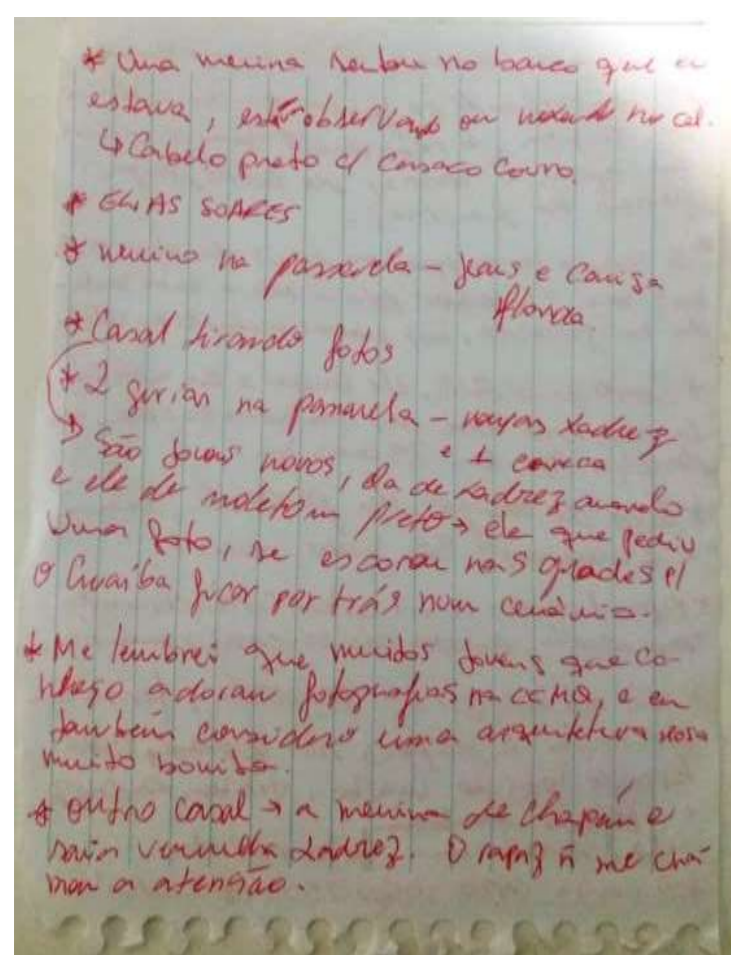 * Uma menina sentou no banco que eu
estava, está observando ou mexendo no cel.
↳ Cabelo preto c/ casaco couro.
* ELIAS SOARES
* menino na passarela – jeans e camisa
florida.
* Casal tirando fotos
* 2 gurias na passarela – roupas xadrez
e 1 careca
→ São jovens novos, ela de xadrez amarelo
e ele de moletom preto → ele que pediu
uma foto, se escorou nas grades p/
o Guaíba ficar por trás num cenário.
* Me lembrei que muitos jovens que co-
nheço adoram fotografias na CCMQ, e eu
também considero uma arquitetura rosa
muito bonita.
* outro casal → a menina de chapéu e
saia vermelha xadrez. O rapaz ñ me cha-
mou a atenção.